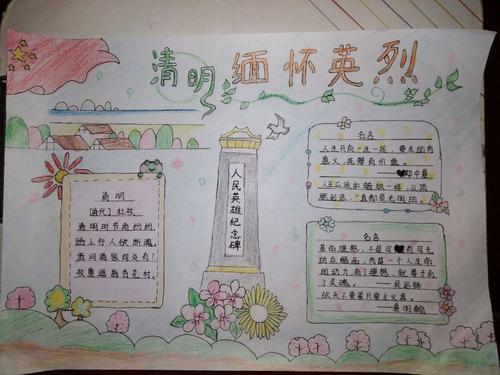 清明 缅怀英烈
清明
[唐代] 杜牧
清明时节雨纷纷，
路上行人欲断魂。
借问酒家何处有？
牧童遥指杏花村。
人民英雄纪念碑
名言
人生只有一生一死，要生的有
意义，死得有价值。
——邓中夏
人生应该如蜡烛一样，从顶
燃到底，一直都是光明的。
名言
革命理想，不是可有可无
的点缀品，而是一个人生命
的动力，有了理想，就等于有
了灵魂。——吴运铎
砍头不要紧只要主义真。
——夏明翰